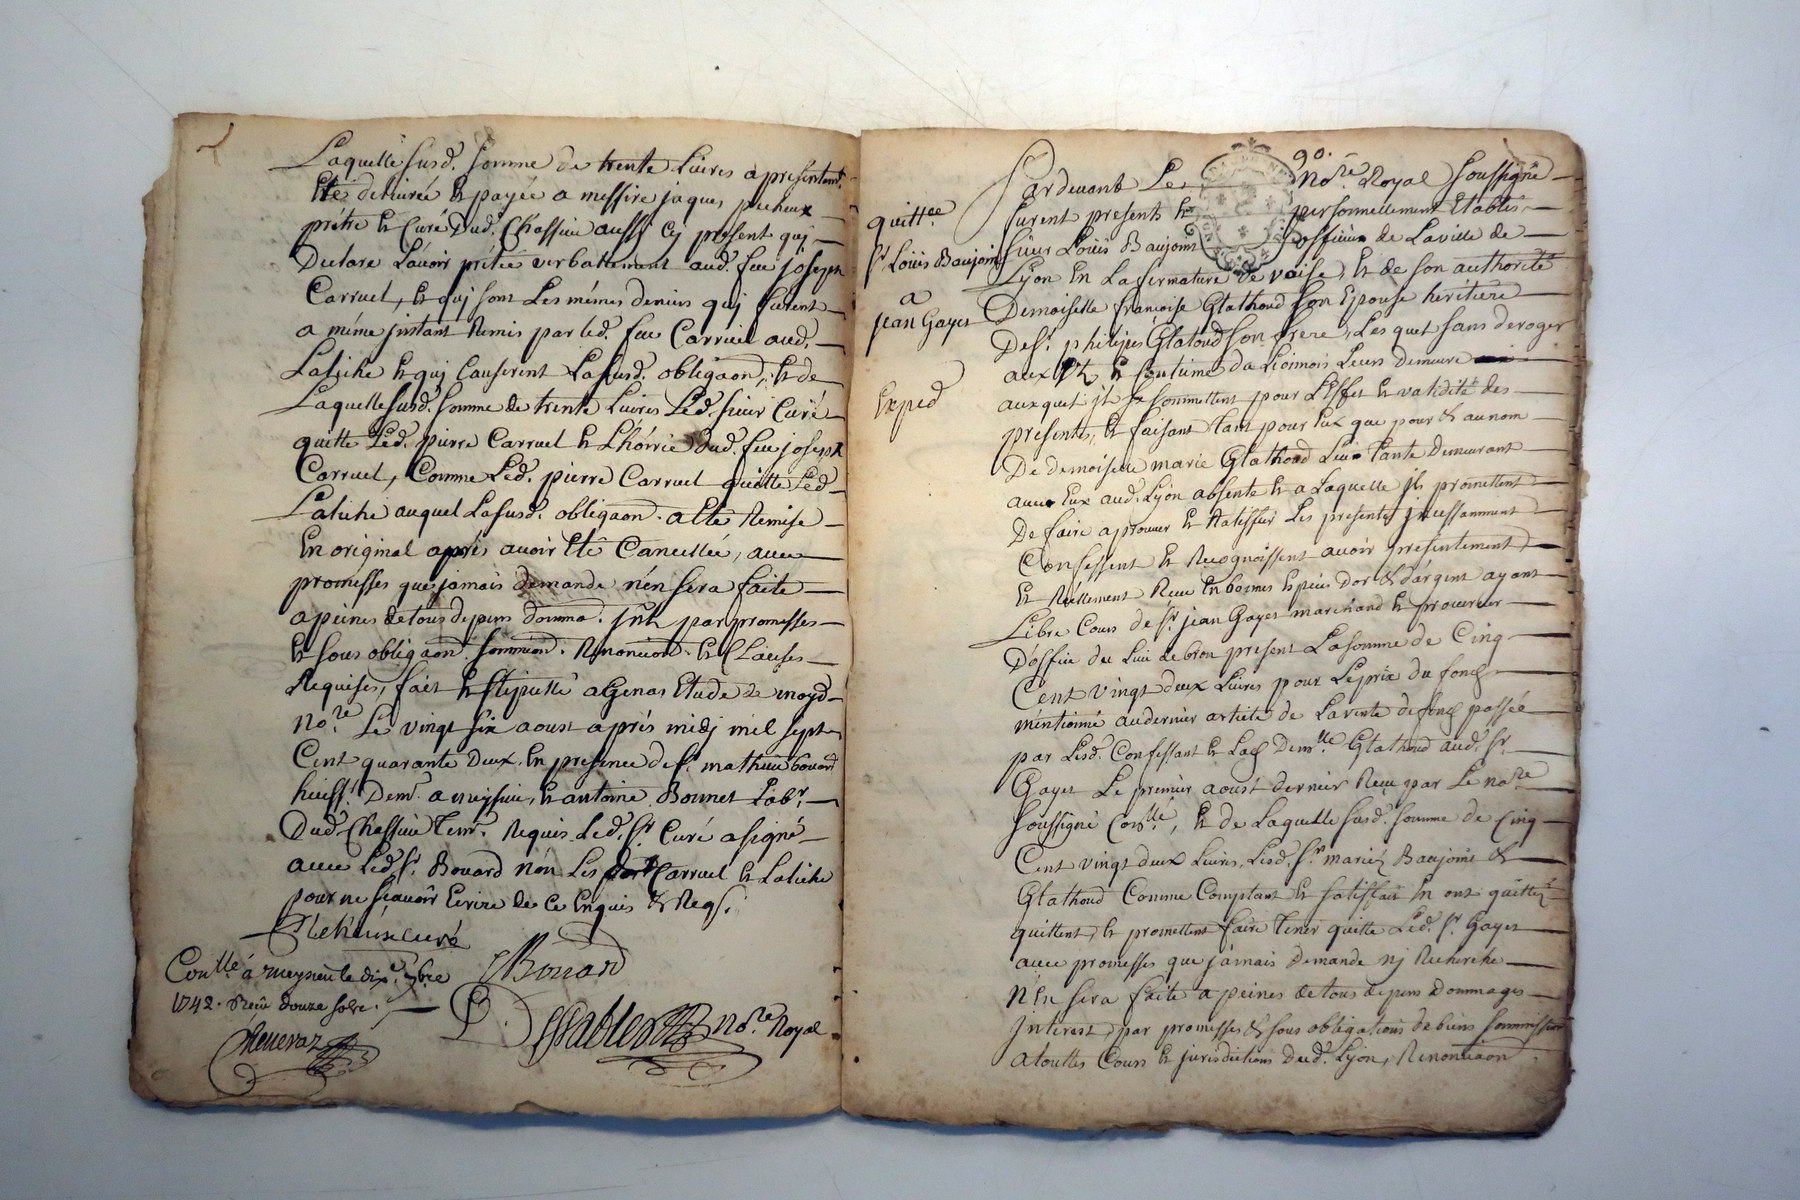 Laquelle susd. somme de trente Livres a presentemt.
Eté delivrée et payée a messire jaques pecheux
prétre et Curé Dud. Chassieu aussy cy present quj
Declare L'avoir prétée verballement aud. feu joseph
Carruel, et quj sont Les mémes deniers quj furent
a méme jnstant Remis par led. feu Carruel aud.
Laliche et quj Causerent Lasusd. obligaon, et de
Laquelle susd. somme de trente Livres Led. sieur Curé
quitte Led. pierre Carruel et L'hoirie dud. feu joseph
Carruel, Comme Led. pierre Carruel quitte Led.
Laliche auquel Lasusd. obligaon. a Eté Remise
En original aprés avoir Eté Cancellée, avec
promésses que jamais demande n'en sera faite
a peines de tous depens domma. jnt. par promesses
et sous obligaon. sommion. Renonciaon. et Clauses
Requises, fait et stipullé a Genas Etude de moyd.
No.re Le vingt six aoust aprés midj mil sept
Cent quarante Deux, En presence de sr. mathieu bouard
huissr. Demt. a meysieu, et antoine Bonnet Labr.
Dud. Chassieu temt. Requis Led. sr. Curé a signé
avec Led. sr. Bouard nón Les dt Carruel et Laliche
pour ne sçavoir Ecrire de ce Enquis & Reqs.
curé
Conllé á meysieu le dixe. 7bre
1742. Reçû douze sols.
Bouard
No.re Royal
90.
Pardevant Le No.re Royal soussigné
furent presents et personnellement Etablis
quittce
sr Loüis Baujoin
a
jean Gayet
Exped
sieur Loüis Baujoin officier de La ville de
Lyon En La fermature de vaise, et de son authorité
Demoiselle francoise Glathoud son Epouse heritiere
De sr. philipes Glatoud son frere, Les quels sans deroger
aux et Coutume du Lionnois Leurs demeure
auxquel jls se sommettent pour L'Effet et validité des
presentes, et faisant tant pour Eux que pour & au nom
De demoiselle marie Glathoud Leur tante Demeurant
avec Eux aud. Lyon absente et a Laquelle jls promettent
De faire aprouver et Ratiffier Les presentes jncessamment
Confessent et Recognoissent avoir présentement
Et Reellement Receu En bonnes Especes D'or & d'argent ayant
Libre Cours de sr. jean Gayet marchand et procureur
D'office du Lieu de bron present La somme de Cinq
Cent vingt deux Livres pour Le prix du fond
mentionné au dernier article de La vente de fond passée
par Lesd. Confessant et Lad. Demlle Glathoud aud. sr.
Gayet Le premier aoust dernier Receu par Le nore
soussigné Conllé, et de Laquelle susd. somme de Cinq
Cent vingt deux Livres, Lesd. sr. mariés Baujoin &
Glathoud Comme Comptant et satisfait En ont quitté,
quittent, et promettent faire tenir quitte Led. sr. Gayet
avec promesses que jámais demande nj Recherche
N'En sera faite a peines de tous depens Dommages
jnterest, par promesses & sous obligations de biens sommission
a touttes Cours et jurisdictions Dud. Lyon, Renonciaon